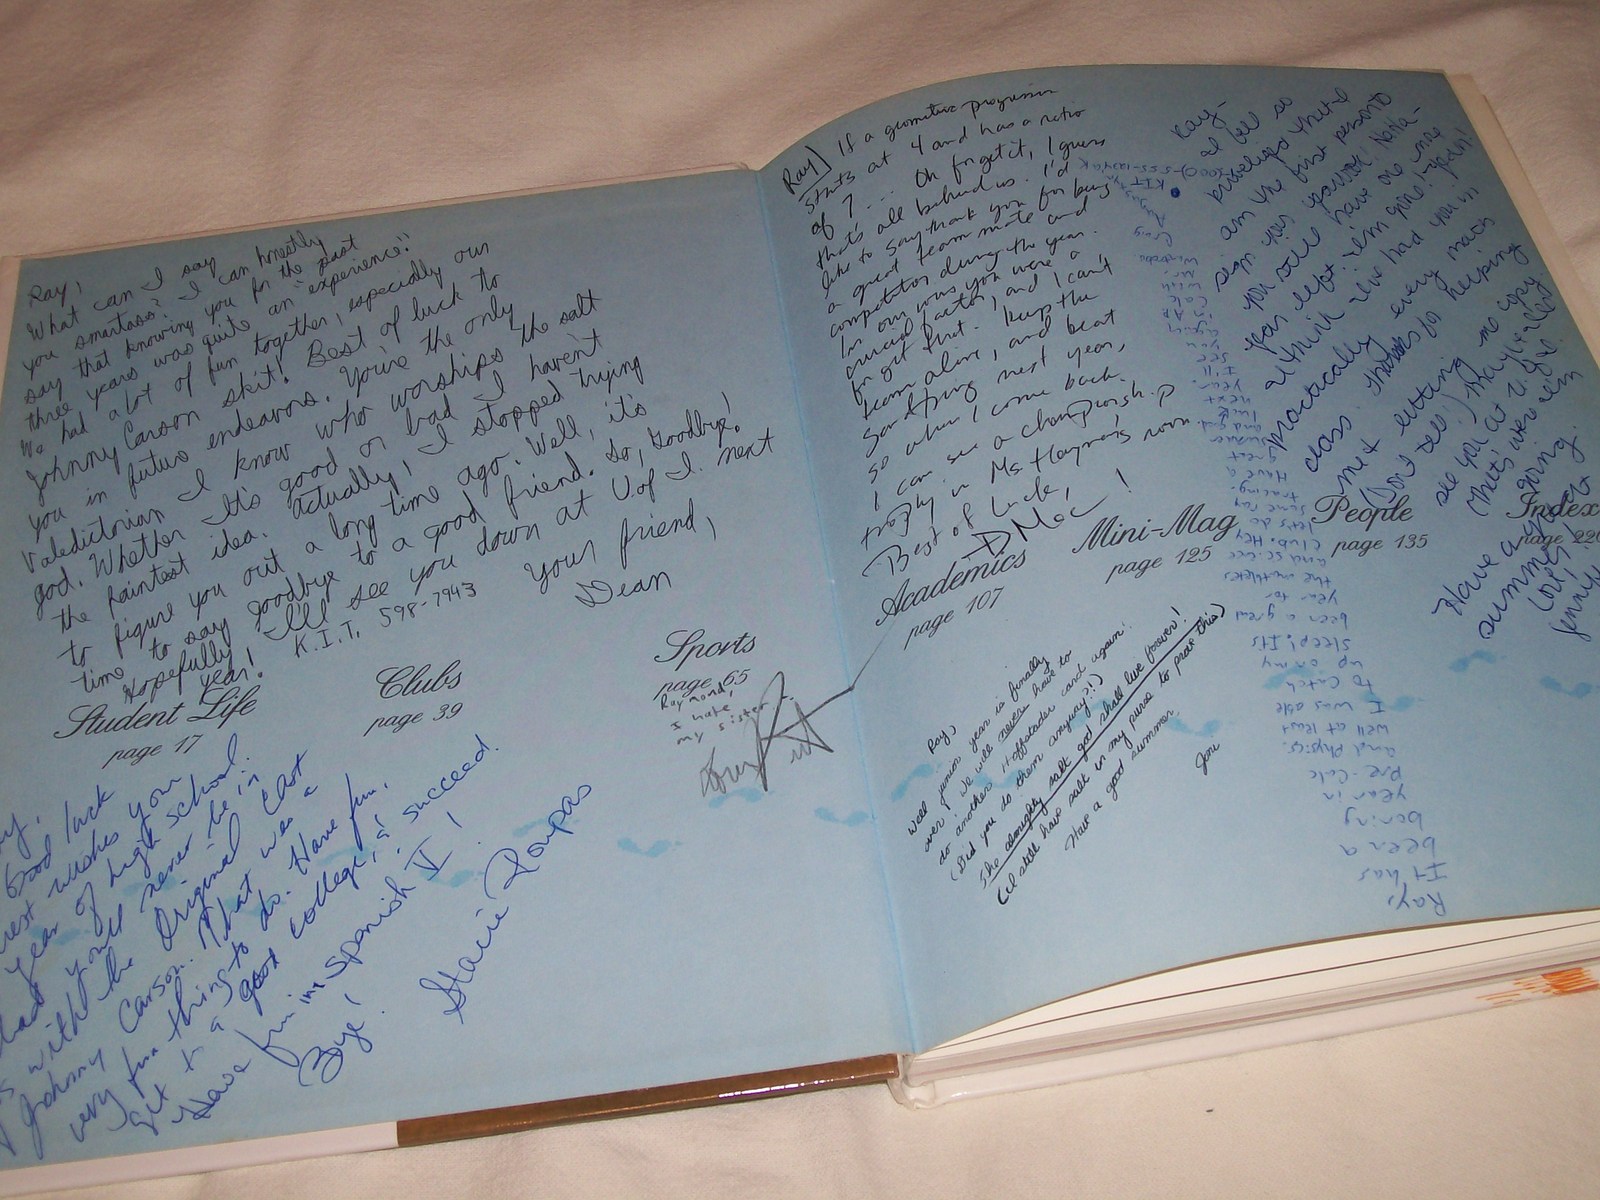 Ray,
What can I say
you smartass? I can honestly
say that knowing you for the past
three years was quite an "experience!"
We had a lot of fun together, especially our
Johnny Carson skit! Best of luck to
you in future endeavors. You're the only
Valedictorian I know who worships the salt
god. Whether it's good or bad I haven't
the faintest idea. Actually, I stopped trying
to figure you out a long time ago. Well, it's
time to say goodbye to a good friend. So, Goodbye!
Hopefully I'll see you down at U. of I. next
year!
K.I.T. 598-7943
Your friend,
Dean
Student Life
page 17
Clubs
page 39
Sports
page 65
Raymond,
I hate
my sister
Good luck
best wishes your
year of high school.
you'll never be in
with the Original Cast
Johnny Carson. That was a
very fun thing to do. Have fun,
get to a good college, & succeed.
Have fun in Spanish V!
Bye!
Stacie Roupas
Ray) If a geometric progression
starts at 4 and has a ratio
of 7... Oh forget it, I guess
that's all behind us. I'd
like to say thank you for being
a great team mate and
competitor during the year.
In our wins you were a
crucial factor, and I can't
forget that. Keep the
team alive, and beat
Sandburg next year,
so when I come back
I can see a championship
trophy in Ms Hayman's room
Best of Luck,
DMac!
Academics
page 107
Mini-Mag
page 125
People
page 135
Index
page 220
Ray)
Well junior year is finally
over! We will never have to
do another Hoffstadter card again!
(Did you do them anyway?!)
The almighty salt god shall live forever!
(I still have salt in my purse to prove this)
Have a good summer.
Ray-
I feel so
privileged that I
am the first person to
sign your yearbook! Ha ha-
you still have one more
year left & I'm gone!
I think I've had you in
practically every math
class. Thanks for helping
me & letting me copy
(Don't tell!) Maybe I'll
see you at U of I
(that's where I'm
going.
Have a great
summer!
Love,
Jenny
Ray,
It has
been a
boring
year in
Pre-Calc
and Physics.
Well at least
I was able
to catch
up on my
sleep. It's
been a great
year for
the mathletes
and
club. Hey
let's do
some
Have a
great
summer
and good
luck
next
year.
I'll
see
you